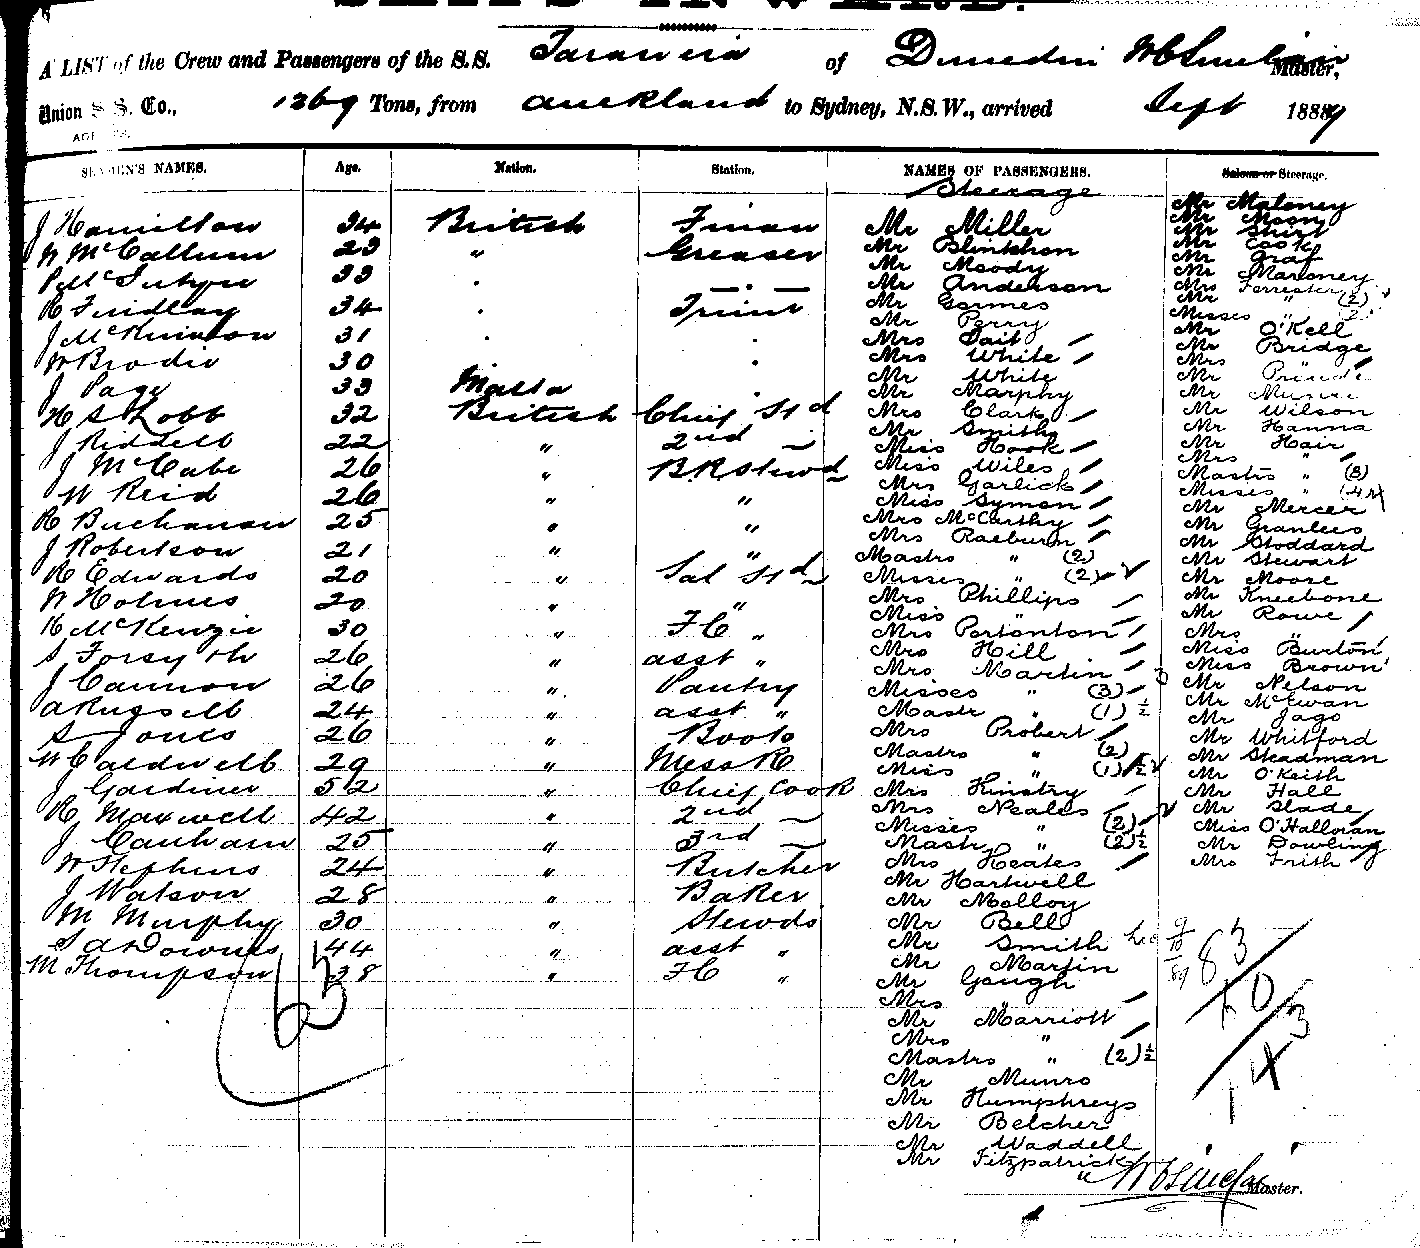 SHIPS INWARD.
A LIST of the Crew and Passengers of the S.S. Tarawera of Dunedin W C Sinclair Master,
Union S. S. Co., 1269 Tons, from Auckland to Sydney, N.S.W., arrived Sept 1889
SEAMEN'S NAMES. Age. Nation. Station. NAMES OF PASSENGERS. Saloon or Steerage.
Steerage
J Hamilton 34 British Fireman
W McCallum 23 " Greaser
P McIntyre 33
R Findlay 34 Trimr
J McKinnon 31
W Brodie 30
J Page 33 Malta
H S Robb 32 British Chief Std
J Riddell 22 " 2nd
J McCabe 26 " B.R. Stewd
W Reid 26 " "
R Buchanan 25 " "
J Robertson 21 " "
R Edwards 20 " Sal Std
W Holmes 20 " "
K McKenzie 30 " F C "
S Forsyth 26 " asst "
J Cannon 26 " Pantry
A Russell 24 " asst "
S Jones 26 " Boots
W Caldwell 29 " Mess R
J Gardiner 52 " Chief Cook
R Maxwell 42 " 2nd
J Canham 25 " 3rd
W Stephens 24 " Butcher
J Watson 28 " Baker
M Murphy 30 " Stewds
S A Downes 44 " asst "
M Thompson 38 " F C "
63
Mr Miller
Mr Blinkhon
Mr Moody
Mr Anderson
Mr Germes
Mr Perry
Mrs Tait
Mrs White
Mr White
Mr Marphy
Mrs Clark
Mr Smith
Miss Hook
Miss Wiles
Mrs Garlick
Miss Symon
Mrs McCarthy
Mrs Raeburn
Mastrs " (2)
Misses " (2)
Mrs Phillips
Miss "
Mrs Portanton
Mrs Hill
Mrs Martin
Misses " (3)
Mastr " (1) ½
Mrs Probert
Mastrs " (2)
Miss " (1) ½
Mrs Kinstry
Mrs Neales
Misses " (2)
Mastr " (2) ½
Mrs Keates
Mr Hartwell
Mr Molloy
Mr Bell
Mr Smith
Mr Martin
Mr Gough
Mrs "
Mr Marriott
Mrs "
Mastrs " (2) ½
Mr Munro
Mr Humphreys
Mr Belcher
Mr Waddell
Mr Fitzpatrick
Mr Maloney
Mr Moon
Mr Shirt
Mr Cook
Mr Graf
Mr Maroney
Mrs Forrester
Mr " (2)
Misses " 2
Mr O'Kell
Mr Bridge
Mrs "
Mr
Mr
Mr Wilson
Mr Hanna
Mr Hair
Mrs "
Mastrs " (8)
Misses " (4)
Mr Mercer
Mr Granlees
Mr Stoddard
Mr Stewart
Mr Moore
Mr Kneebone
Mr Rowe
Mrs "
Miss Burton
Miss Brown
Mr Nelson
Mr McEwan
Mr Jago
Mr Whitford
Mr Steadman
Mr O'Keith
Mr Hall
Mr Slade
Miss O'Halloran
Mr Dowling
Mrs Frith
9/10/89
83
W C Sinclair Master.